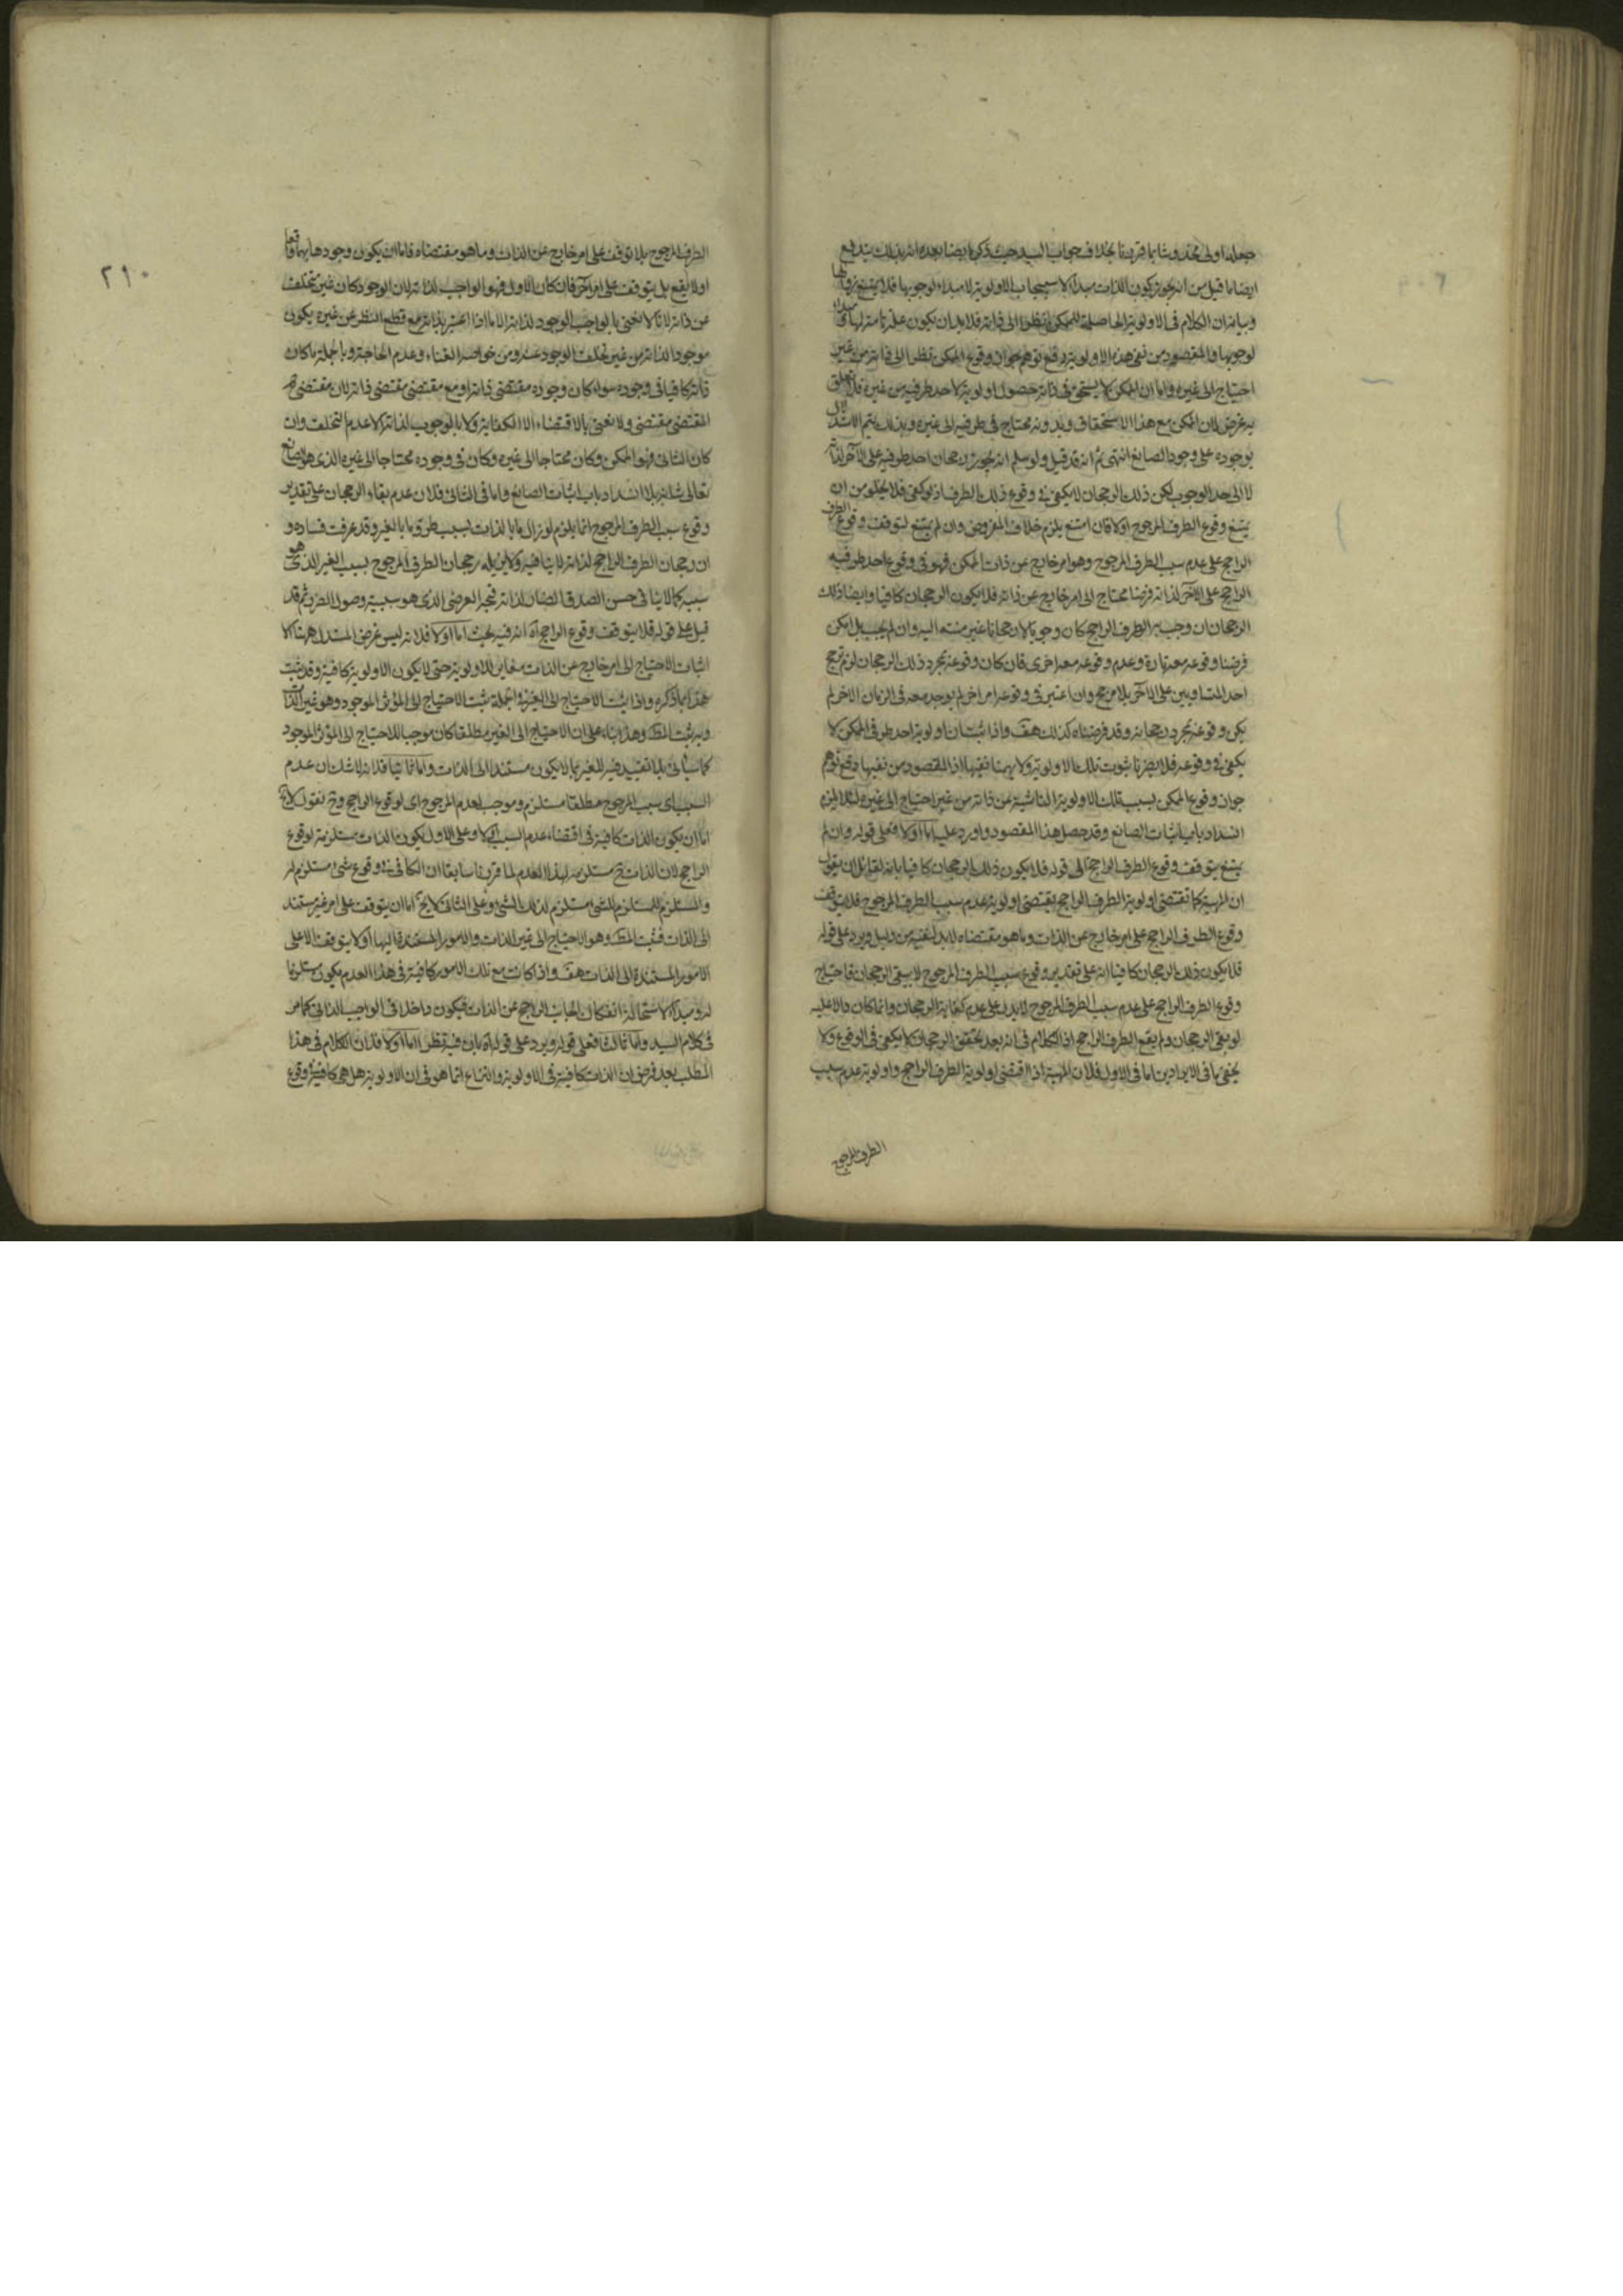 جعله اولى مخدوشا بما قررنا بخلاف جواب السيد حيث ذكر ايضا بعده انه بذلك يندفع
ايضا ما قيل من انه يجوز كون الذات مبدأ لاستيجاب الاولوية لا مبدأ لوجوبها فلا يمتنع زوالها
وبيانه ان الكلام في الاولوية الحاصلة للممكن نظرا الى ذاته فلا بد ان يكون علة تامة لها
لوجوبها والمقصود من نفي هذه الاولوية دفع توهم جواز وقوع الممكن نظرا الى ذاته من غير
احتياج الى غيره واما ان الممكن لا يستحق في ذاته حصول اولوية لاحد طرفيه من غيره فلا يتعلق
به غرض لان الممكن مع هذا الاستحقاق وبدونه محتاج في طرفيه الى غيره وبذلك يتم الاستدلال
بوجوده على وجود الصانع انتهى ثم انه قد قيل ولو سلم انه يجوز رجحان احد طرفيه على الآخر لذاته
لا الى حد الوجوب لكن ذلك الرجحان لا يكفي في وقوع ذلك الطرف اذ لو كفى فلا يخلو من ان
يمتنع وقوع الطرف المرجوح اولا فان امتنع يلزم خلاف المفروض وان لم يمتنع لتوقف وقوع الطرف
الراجح على عدم سبب الطرف المرجوح وهو امر خارج عن ذات الممكن فهو في وقوع احد طرفيه
الراجح على الآخر لذاته فرضا محتاج الى امر خارج عن ذاته فلا يكون الرجحان كافيا وايضا ذلك
الرجحان ان وجب به الطرف الراجح كان وجوبا لا رجحانا غير منته اليه وان لم يجب بل امكن
فرضنا وقوعه معه تارة وعدم وقوعه معه اخرى فان كان وقوعه بمجرد ذلك الرجحان لزم ترجح
احد المتساويين على الآخر بلا مرجح وان اعتبر في وقوعه امر اخر لم يوجد معه في الزمان الآخر لم
يكن وقوعه بمجرد رجحانه وقد فرضناه كذلك هف واذا ثبت ان اولوية احد طرفي الممكن لا
يكفي في وقوعه فلا يضرنا ثبوت تلك الاولوية ولا يهمنا نفيها اذ المقصود من نفيها دفع توهم
جواز وقوع الممكن بسبب تلك الاولوية الناشية عن ذاته من غير احتياج الى غيره لئلا يلزم
انسداد باب اثبات الصانع وقد حصل هذا المقصود واورد عليه اما اولا فعلى قوله وان لم
يمتنع يتوقف وقوع الطرف الراجح الى قوله فلا يكون ذلك الرجحان كافيا بانه لقائل ان يقول
ان المهية كما تقتضي اولوية الطرف الراجح يقتضي اولوية عدم سبب الطرف المرجوح فلا يتوقف
وقوع الطرف الراجح على امر خارج عن الذات وما هو مقتضاه لا بد لنفيه من دليل ويرد على قوله
فلا يكون ذلك الرجحان كافيا انه على تقدير وقوع سبب الطرف المرجوح لا يبقى الرجحان فاحتياج
وقوع الطرف الراجح على عدم سبب الطرف المرجوح لا يدل على عدم كفاية الرجحان وانما كان دالا عليه
لو بقي الرجحان ولم يقع الطرف الراجح اذ الكلام في انه بعد تحقق الرجحان لا يكفي في الوقوع ولا
يخفى ما في الايرادين اما في الاول فلان المهية اذا اقتضى اولوية الطرف الراجح واولوية عدم سبب
الطرف المرجوح
٢١٠
الطرف المرجوح بلا توقف على امر خارج عن الذات وما هو مقتضاه فاما ان يكون وجودها بهما واقعا
اولا يقع بل يتوقف على امر آخر فان كان الاول فهو الواجب لذاته لان الوجود كان غير متخلف
عن ذاته لانا لا نعني بالواجب الوجود لذاته الا ما اذا اعتبر بذاته مع قطع النظر عن غيره يكون
موجودا لذاته من غير تخلف الوجود عنه ومن خواصه الغناء وعدم الحاجة وبالجملة ما كان
ذاته كافيا في وجوده سواء كان وجوده مقتضى ذاته او مع مقتضى مقتضى ذاته لان مقتضى
المقتضى مقتضى ولا نعني بالاقتضاء الا الكفاية ولا بالوجوب لذاته الا عدم التخلف وان
كان الثاني فهو الممكن وكان محتاجا الى غيره وكان في وجوده محتاجا الى غيره الذي هو الصانع
تعالى شانه بلا انسداد باب اثبات الصانع واما في الثاني فلان عدم بقاء الرجحان على تقدير
وقوع سبب الطرف المرجوح انما يلزم لو زال ما بالذات بسبب طرو ما بالغير وقد عرفت فساده و
ان رجحان الطرف الراجح لذاته لا ينافيه ولا يزيله رجحان الطرف المرجوح بسبب الغير الذي هو
سببه كما لا ينافي حسن الصدق الضار لذاته قبحه العرضي الذي هو سببية وصول الضرر ثم قد
قيل على قوله فلا يتوقف وقوع الراجح آه انه فيه بحث اما اولا فلانه ليس غرض المستدل ههنا الا
اثبات الاحتياج الى امر خارج عن الذات مغاير للاولوية حتى لا يكون الاولوية كافية وقد ثبت
هذا بما ذكره واذا ثبت الاحتياج الى الغير في الجملة ثبت الاحتياج الى المؤثر الموجود وهو غير الذات
وبه يثبت المط وهذا بناء على ان الاحتياج الى الغير مطلقا كان موجبا للاحتياج الى المؤثر الموجود
كما سيأتي بلا تقييد فيه للغير بما لا يكون مستندا الى الذات واما ثانيا فلانه لا شك ان عدم
السبب اى سبب المرجوح مطلقا مستلزم وموجب لعدم المرجوح اى لوقوع الراجح وح نقول لا يخ
اما ان يكون الذات كافية في اقتضاء عدم السبب اولا وعلى الاول يكون الذات مستلزمة لوقوع
الراجح لان الذات ح مستلزمة لهذا العدم لما قررنا سابقا ان الكافي في وقوع شئ مستلزم له
والمستلزم للمستلزم للشئ مستلزم لذلك الشئ وعلى الثاني لا يخ اما ان يتوقف على امر غير مستند
الى الذات فثبت المط وهو الاحتياج الى غير الذات والامور المستندة اليها اولا يتوقف الا على
الامور المستندة الى الذات هف واذا كانت مع تلك الامور كافية في هذا العدم يكون مستلزما
له ومبدأ لاستحالة انفكاك الجانب الراجح عن الذات فيكون داخلا في الواجب الذاتي كما مر
في كلام السيد واما ثالثا فعلى قوله ويرد على قوله آه بان فيه نظرا اما اولا فلان الكلام في هذا
المطلب بعد فرض ان الذات كافية في الاولوية والنزاع انما هو في ان الاولوية هل هي كافية في وقوع